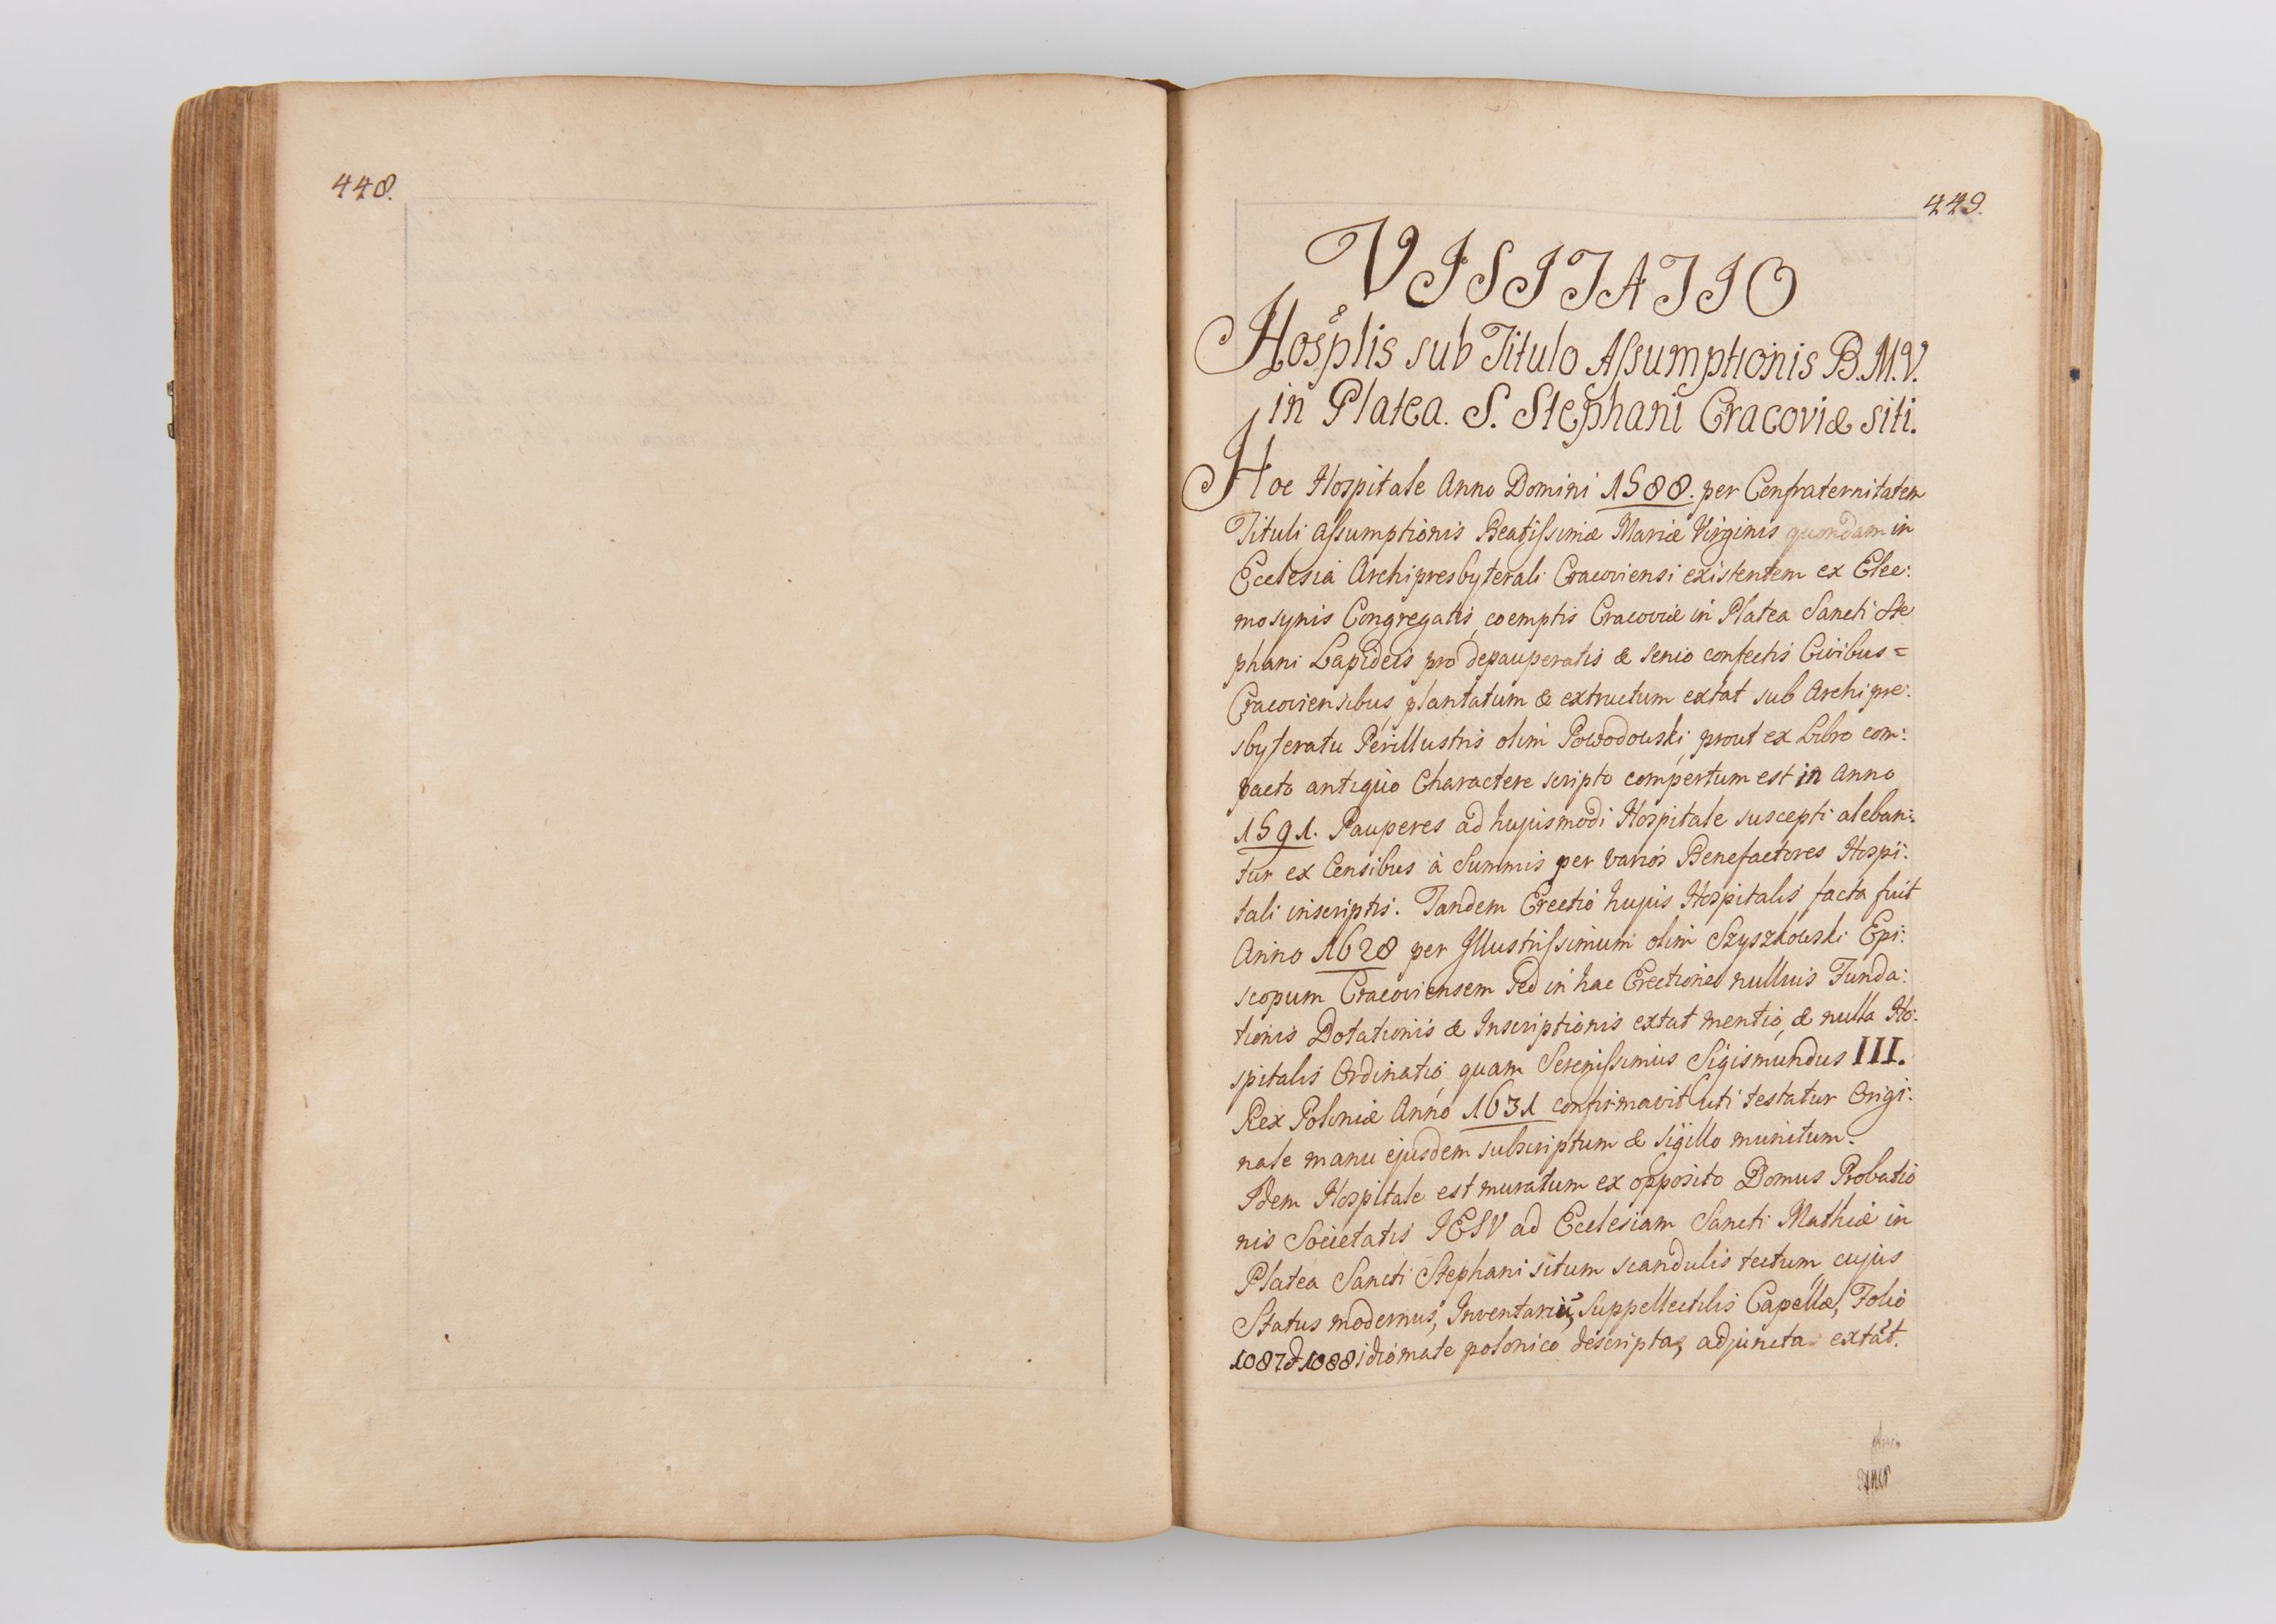 448.
449.
VISITATIO
Hosplis sub Titulo Assumptionis B.M.V.
in Platea. S. Stephani Cracoviæ siti.
Hoc Hospitale Anno Domini 1588. per Confraternitatem
Tituli Assumptionis Beatissimæ Mariæ Virginis quondam in
Ecclesia Archipresbyterali Cracoviensi existentem ex Elee:
mosynis Congregatis, coemptis Cracoviæ in Platea Sancti Ste
phani Lapideis pro depauperatis & senio confectis Civibus=
Cracoviensibus plantatum & extructum extat sub Archipre:
sbyteratu Perillustris olim Powodowski, prout ex Libro com:
pacto antiquo Charactere scripto compertum est in Anno
1591. Pauperes ad hujusmodi Hospitale suscepti aleban:
tur ex Censibus à Summis per varios Benefactores Hospi:
tali inscriptis. Tandem Erectio hujus Hospitalis facta fuit
Anno 1628 per Jllustrissimum olim Szyszkowski Epi:
scopum Cracoviensem sed in hac Erectione nullius Funda:
tionis Dotationis & Inscriptionis extat mentio, & nulla Ho:
spitalis Ordinatio, quam Serenissimus Sigismundus III.
Rex Poloniæ Anno 1631 confirmavit uti testatur Origi:
nale manu ejusdem subscriptum & sigillo munitum.
Idem Hospitale est muratum ex opposito Domus Probatio
nis Societatis IESV ad Ecclesiam Sancti Mathiæ in
Platea Sancti Stephani situm scandulis tectum, cujus
Status modernus, Inventariū, Suppellectilis Capellæ, Folio
1087 & 1088 idiomate polonico descripta, adjuncta extat.